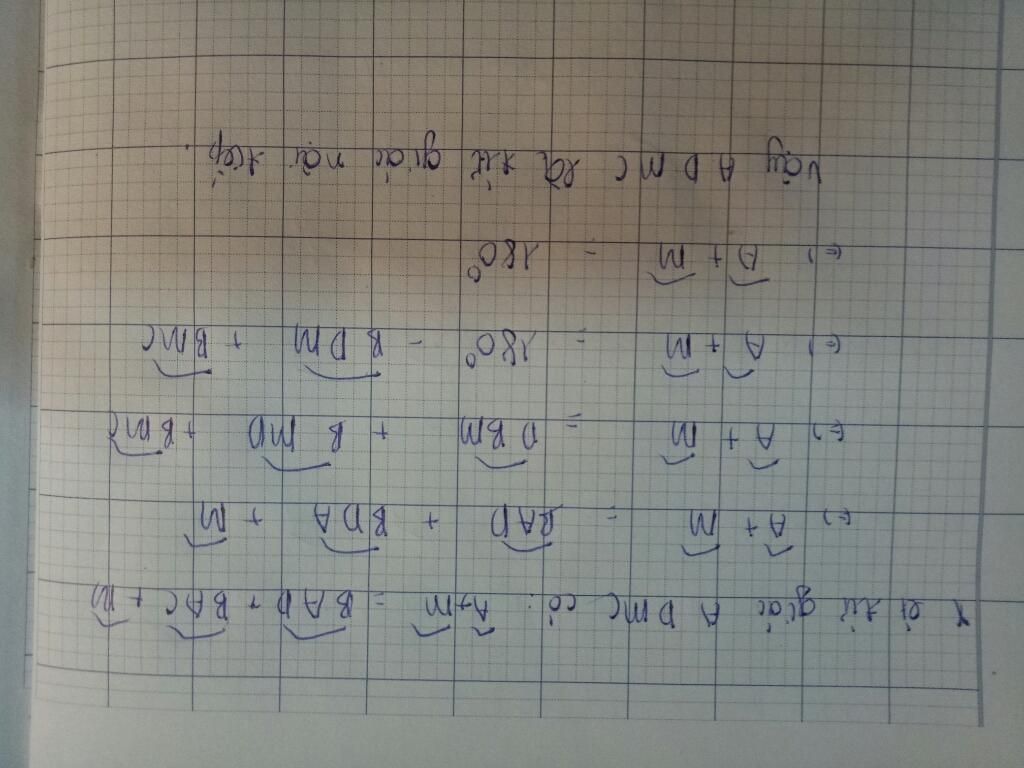 Xét tứ giác ADMC có: Â + M̂ = BAD + BAC + M̂
(=) Â + M̂ = BAD + BDA + M̂
(=) Â + M̂ = DBM + BMD + BMC
(=) Â + M̂ = 180° - BDM + BMC
(=) Â + M̂ = 180°
Vậy ADMC là tứ giác nội tiếp.